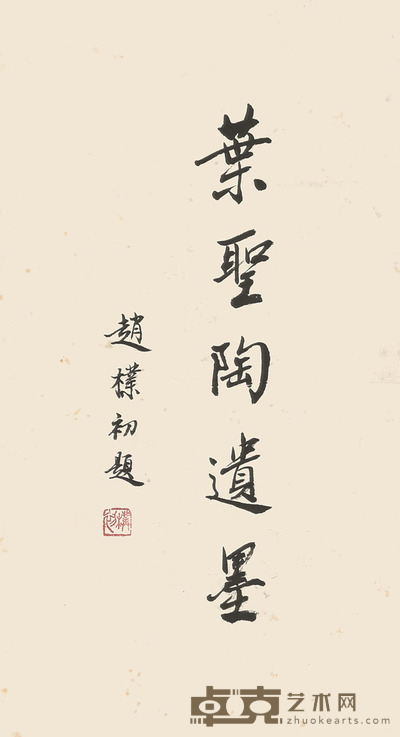 葉聖陶遺墨
趙樸初題
卓克艺术网
zhuokearts.com